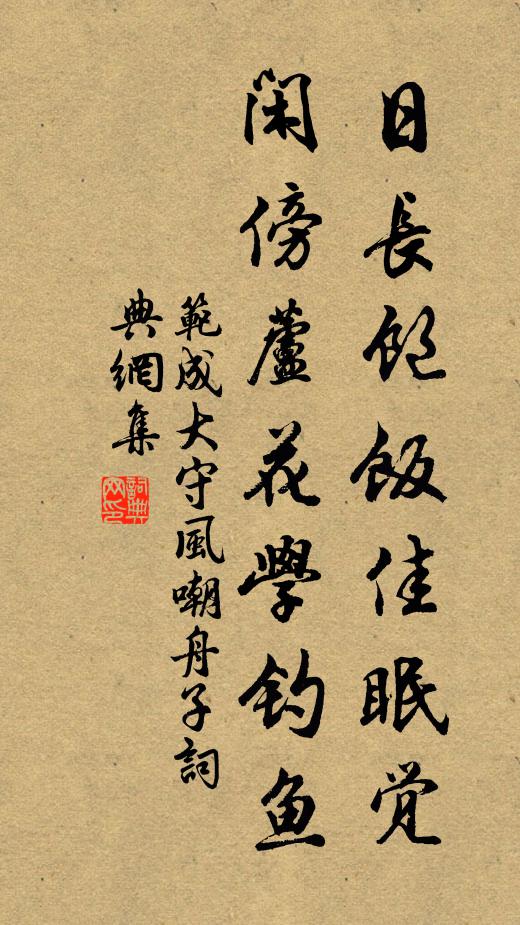 日長飽飯佳眠覺
閑傍蘆花學釣魚
範成大守風嘲舟子詞
典網集
詞典網印